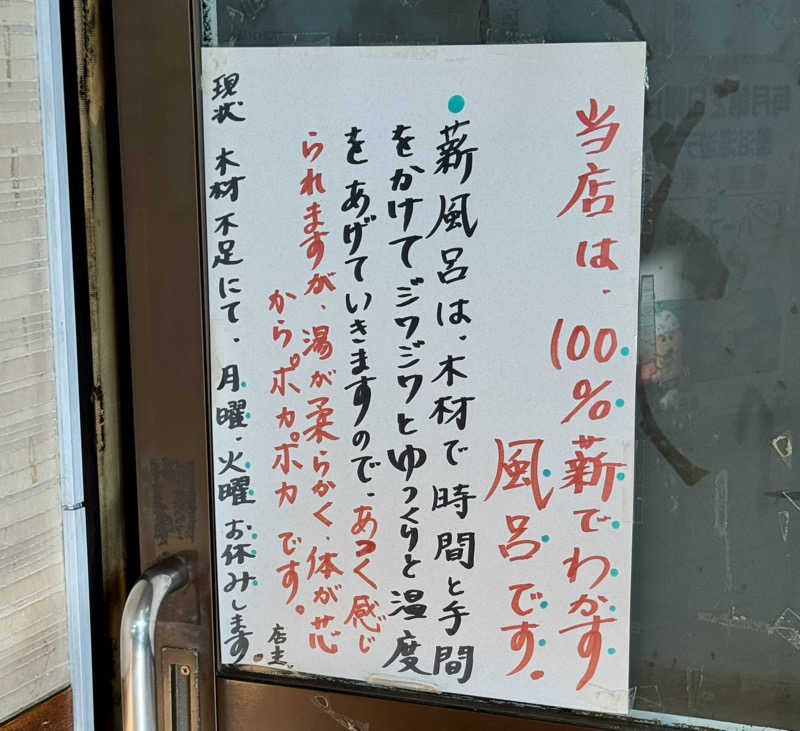 当店は、100%薪でわかす
風呂です。
●薪風呂は、木材で時間と手間
をかけてジワジワとゆっくりと温度
をあげていきますので、あつく感じ
られますが、湯が柔らかく、体が芯
からポカポカです。
現状 木材不足にて、月曜、火曜お休みします。
店主